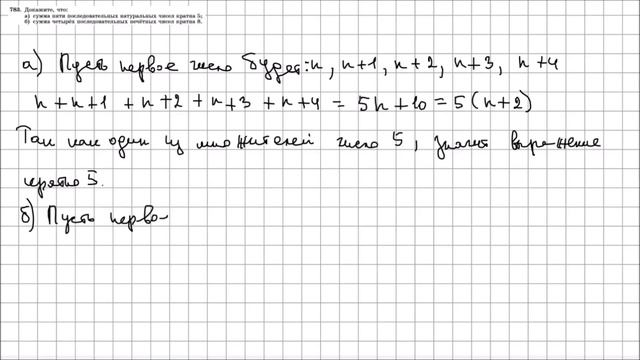 783. Докажите, что:
а) сумма пяти последовательных натуральных чисел кратна 5;
б) сумма четырёх последовательных нечётных чисел кратна 8.
а) Пусть первое число будет: n, n+1, n+2, n+3, n+4
n+n+1+n+2+n+3+n+4 = 5n+10 = 5(n+2)
Так как один из множителей число 5, значит выражение
кратно 5.
б) Пусть перво